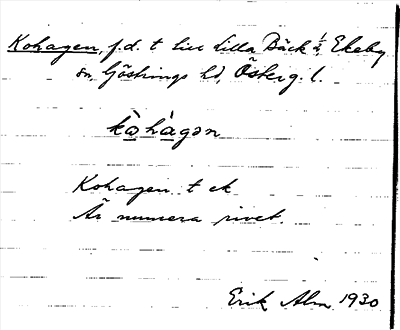 Kohagen, f.d. t till Lilla Bäck ½, Ekeby
sn, Göstrings hd, Österg. l.
kòhàgən
Kohagen t ek
Är numera rivet.
Erik Alm 1930